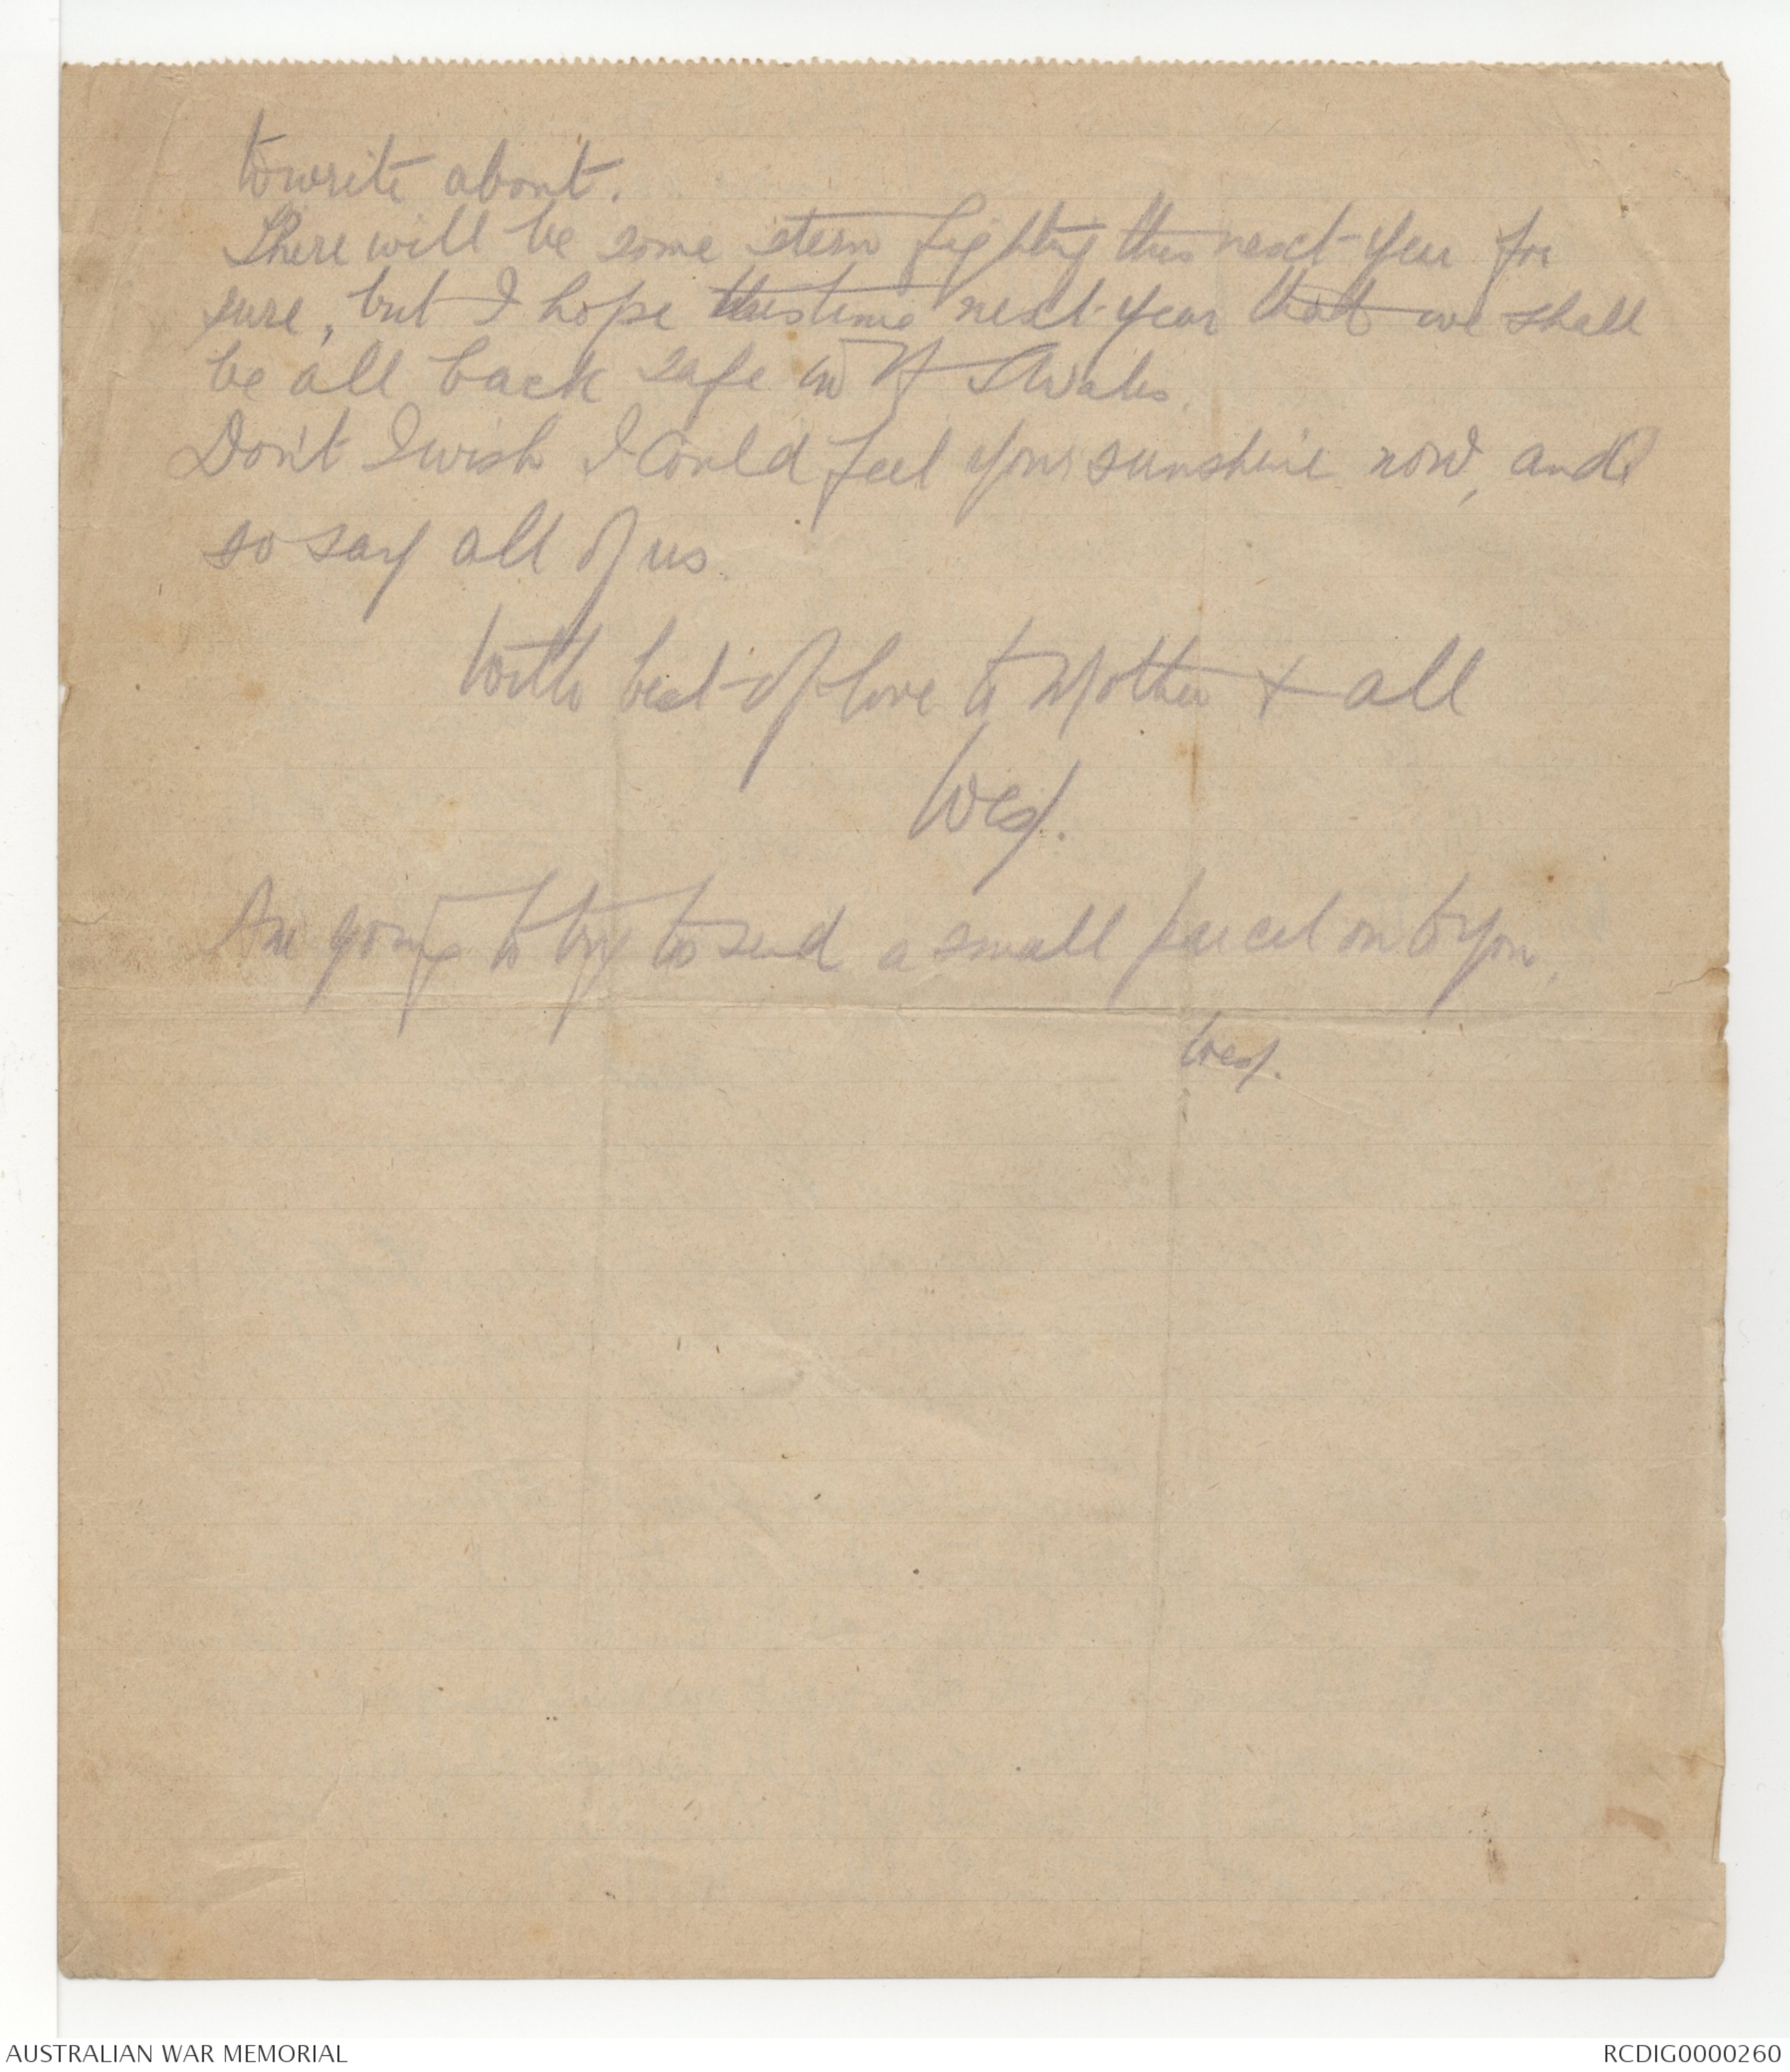 to write about.
There will be some stern fighting this next year for
sure, but I hope this time next year that we shall
be all back safe in N S Wales.
Don't I wish I could feel your sunshine now, and
so say all of us.
With best of love to Mother + all
Wes.
Am going to try to send a small parcel on to you,
Wes.
AUSTRALIAN WAR MEMORIAL
RCDIG0000260